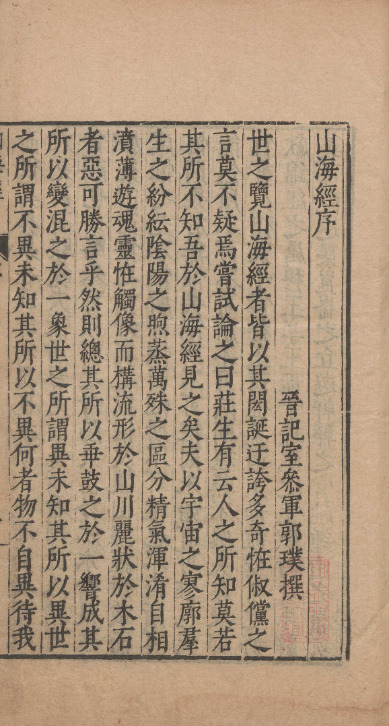 山海經序
晉記室叅軍郭璞撰
世之覽山海經者皆以其閎誕迂誇多奇怪俶儻之
言莫不疑焉嘗試論之曰莊生有云人之所知莫若
其所不知吾於山海經見之矣夫以宇宙之寥廓羣
生之紛紜陰陽之煦蒸萬殊之區分精氣渾淆自相
濆薄遊魂靈怪觸像而構流形於山川麗狀於木石
者惡可勝言乎然則總其所以乖鼓之於一響成其
所以變混之於一象世之所謂異未知其所以異世
之所謂不異未知其所以不異何者物不自異待我